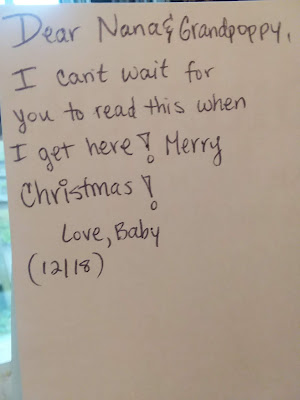 Dear Nana & Grandpoppy,
I can't wait for
you to read this when
I get here! Merry
Christmas!
Love, Baby
(12/18)